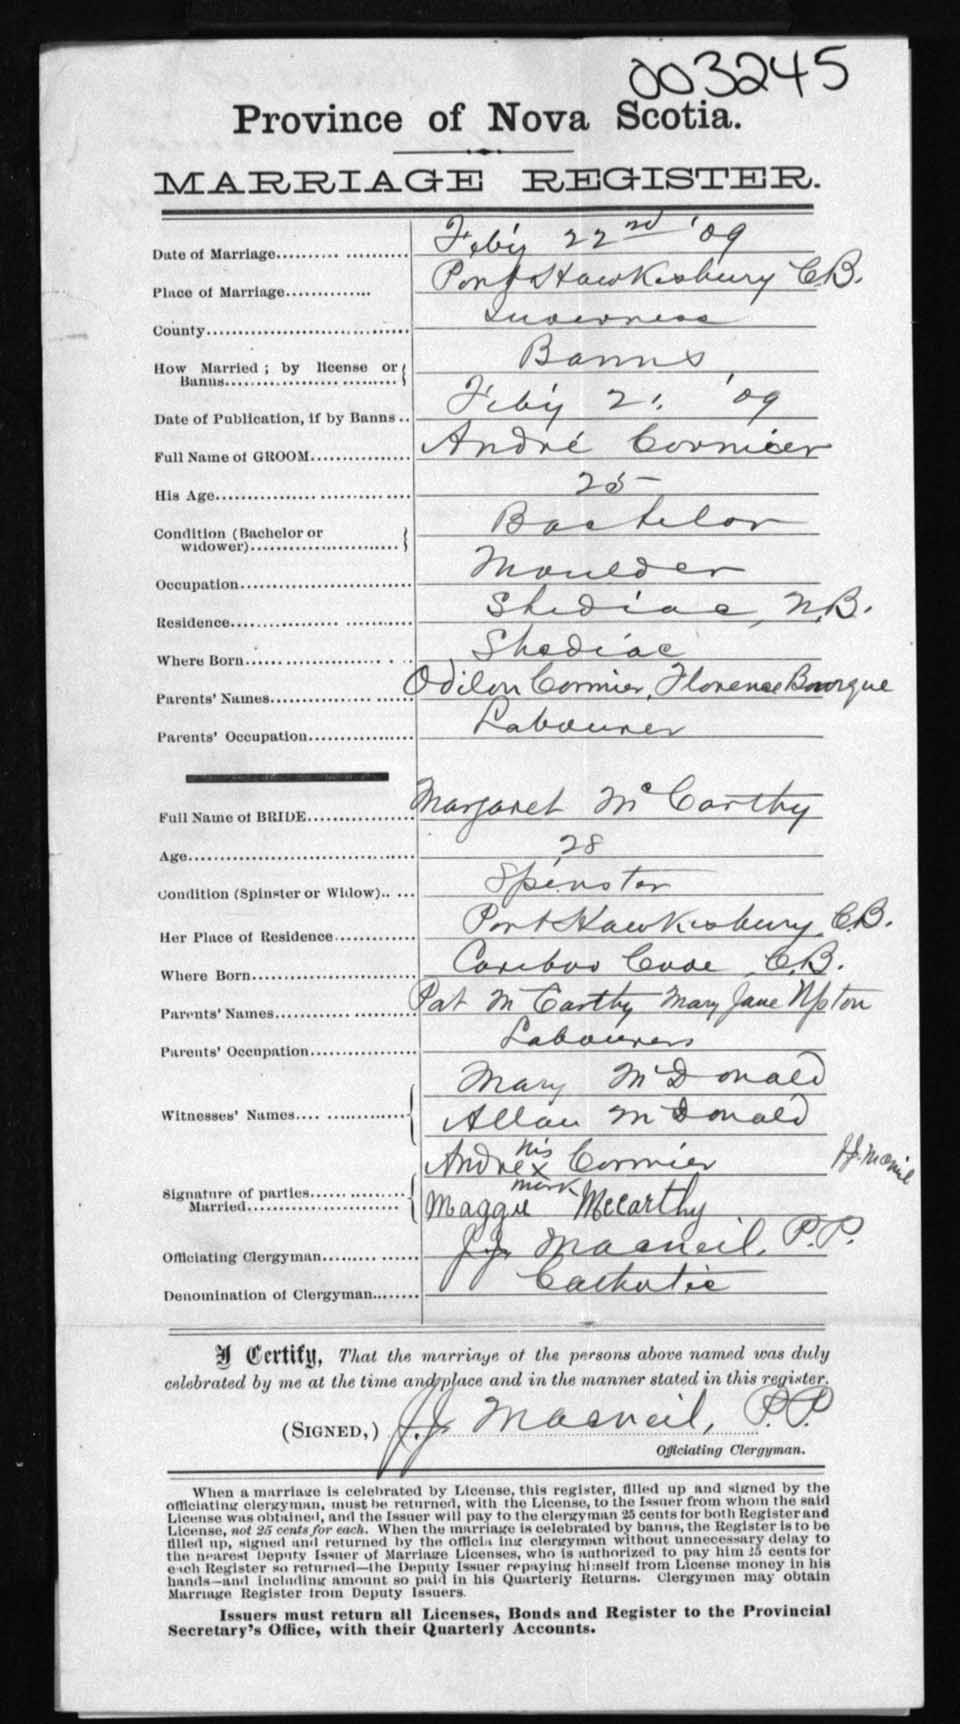 003245
Province of Nova Scotia.
MARRIAGE REGISTER.
Date of Marriage Feb'y 22nd '09
Place of Marriage Port Hawkesbury C.B.
County Inverness
How Married ; by license or
Banns Banns
Date of Publication, if by Banns Feb'y 21. '09
Full Name of GROOM André Cormier
His Age 25
Condition (Bachelor or
widower) Bachelor
Occupation Moulder
Residence Shediac, N.B.
Where Born Shediac
Parents' Names Odilon Cormier, Florence Bourque
Parents' Occupation Labourer
Full Name of BRIDE Margaret McCarthy
Age 28
Condition (Spinster or Widow) Spinster
Her Place of Residence Port Hawkesbury, C.B.
Where Born Cariboo Cove, C.B.
Parents' Names Pat McCarthy Mary Jane Upton
Parents' Occupation Labourers
Mary McDonald
Witnesses' Names
Allan McDonald
his
Andre x Cormier J.J. Macneil
mark
Signature of parties
Married Maggie McCarthy
Officiating Clergyman J.J. Macneil, P.P.
Denomination of Clergyman Catholic
I Certify, That the marriage of the persons above named was duly
celebrated by me at the time and place and in the manner stated in this register.
(SIGNED,) J.J. Macneil, P.P.
Officiating Clergyman.
When a marriage is celebrated by License, this register, filled up and signed by the
officiating clergyman, must be returned, with the License, to the Issuer from whom the said
License was obtained, and the Issuer will pay to the clergyman 25 cents for both Register and
License, not 25 cents for each. When the marriage is celebrated by banns, the Register is to be
filled up, signed and returned by the officia ing clergyman without unnecessary delay to
the nearest Deputy Issuer of Marriage Licenses, who is authorized to pay him 25 cents for
each Register so returned—the Deputy Issuer repaying himself from License money in his
hands—and including amount so paid in his Quarterly Returns. Clergymen may obtain
Marriage Register from Deputy Issuers.
Issuers must return all Licenses, Bonds and Register to the Provincial
Secretary's Office, with their Quarterly Accounts.